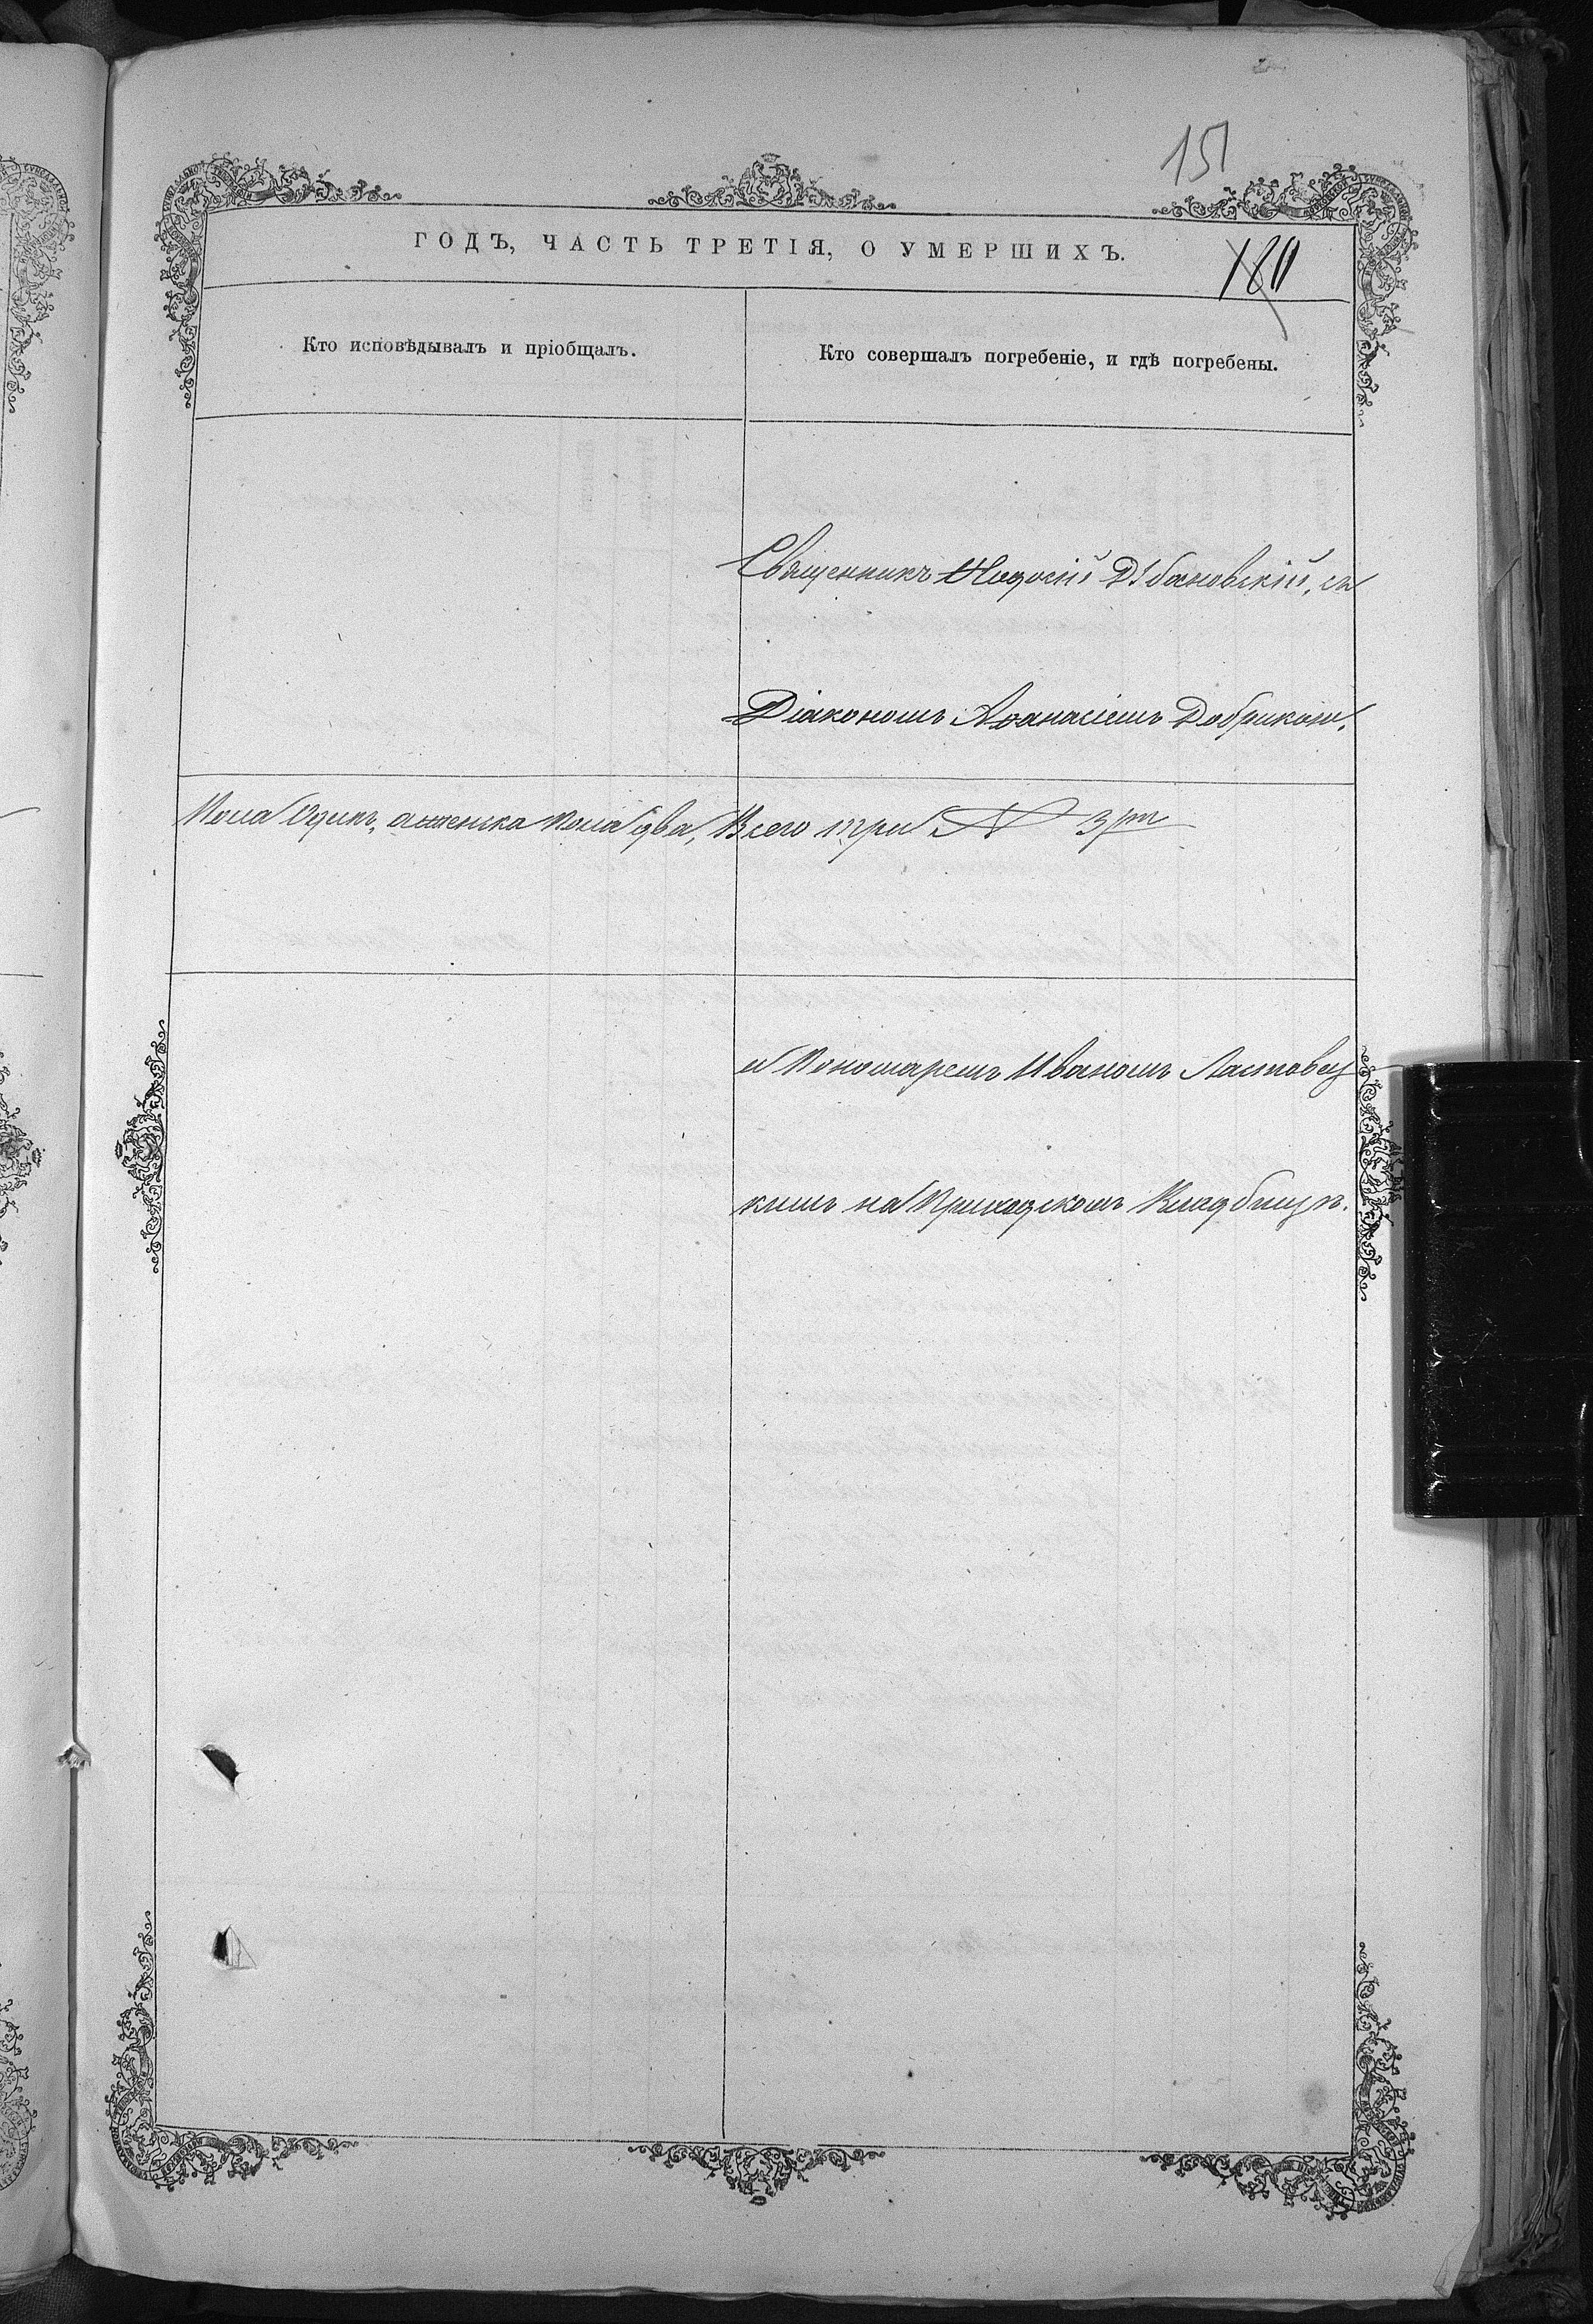 151
ГОДЪ, ЧАСТЬ ТРЕТІЯ, О УМЕРШИХЪ.
180
Кто исповѣдывалъ и пріобщалъ.
Кто совершалъ погребеніе, и гдѣ погребены.
Священникъ Ѳеодосій Дѣбановскій, съ
Діакономъ Аѳанасіемъ Добрикомъ.
Пола Одинъ, а женска Пола два, Всего три № 3ри
и Пономаремъ Иваномъ Ластовец
кимъ на Приходскомъ Кладбищѣ.